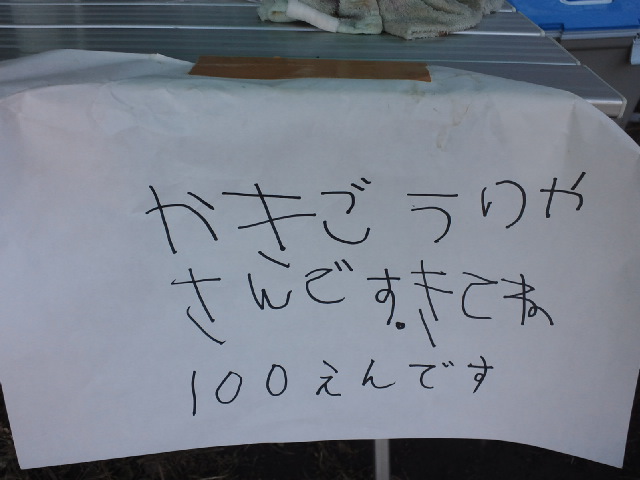 かきごうりや
さんです.きてね
100えんです